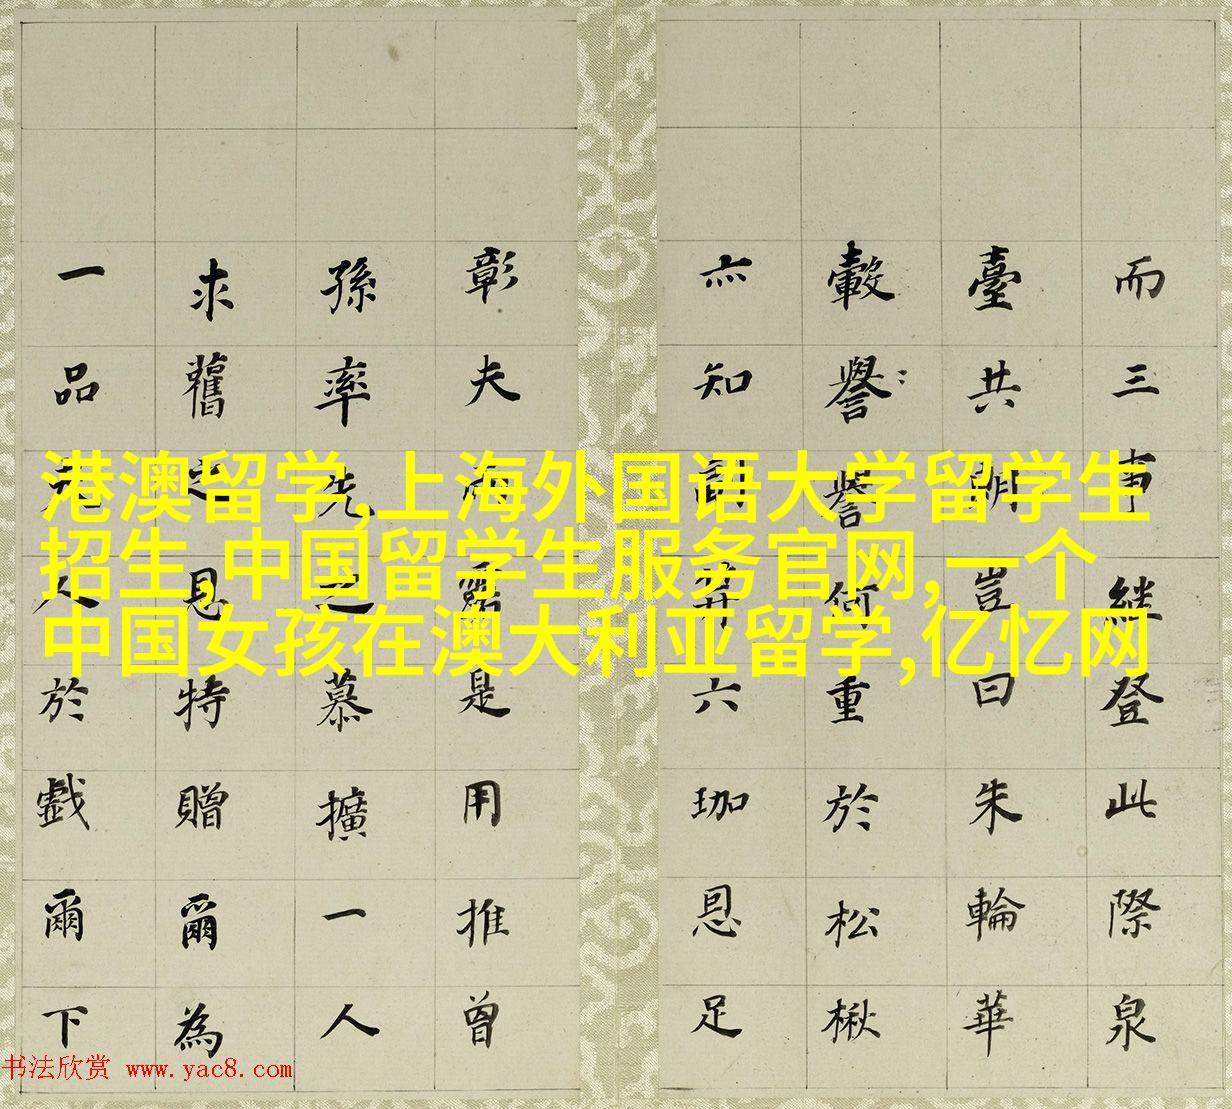 港澳留学,上海外国语大学留学生
招生,中国留学生服务官网,一个
中国女孩在澳大利亚留学,亿忆网
而三事繼登此際泉
臺共朝豈曰朱輪華
轂譽譽何重於松楸
亦知副笄六珈恩足
彰夫雨露是用推曾
孫率先之慕擴一人
求舊之恩特贈爾為
一品夫人於戲爾下
书法欣赏 www.yac8.com